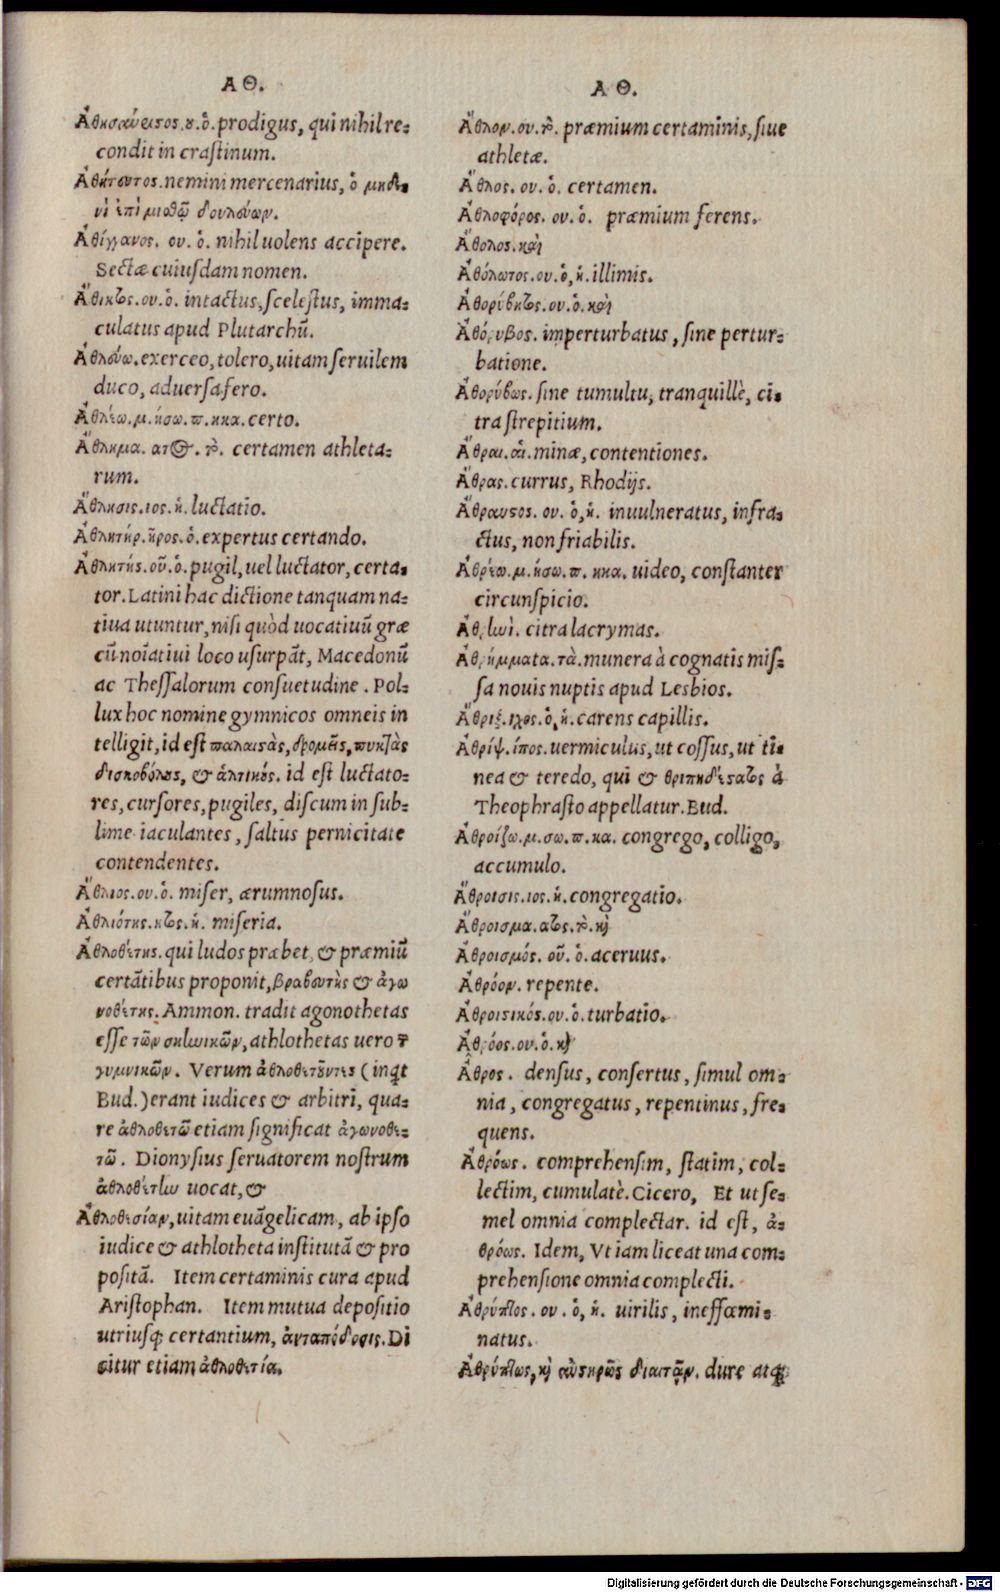 ΑΘ.
Ἀθησαύριστος.ου.ὁ. prodigus, qui nihil re-
condit in crastinum.
nemini mercenarius, ὁ μηδε-
νὶ ἐπὶ μισθῷ δουλεύων.
Ἀθίγγανος. ου. ὁ. nihil uolens accipere.
Sectæ cuiusdam nomen.
Ἄθικτος.ου.ὁ. intactus, scelestus, imma-
culatus apud Plutarchũ.
Ἀθλεύω. exerceo, tolero, uitam seruilem
duco, aduersa fero.
Ἀθλέω.μ.ήσω.π.ηκα. certo.
Ἄθλημα. ατος. τὸ. certamen athleta-
rum.
Ἄθλησις.ιος.ἡ. luctatio.
Ἀθλητήρ.ῆρος.ὁ. expertus certando.
Ἀθλητής.οῦ.ὁ. pugil, uel luctator, certa-
tor. Latini hac dictione tanquam na-
tiua utuntur, nisi quòd uocatiuũ græ
cũ noĩatiui loco usurpãt, Macedonũ
ac Thessalorum consuetudine. Pol-
lux hoc nomine gymnicos omneis in
telligit, id est παλαιστὰς, δρομεῖς, πυκτὰς
δισκοβόλους, & ἁλτικούς. id est luctato-
res, cursores, pugiles, discum in sub-
lime iaculantes, saltus pernicitate
contendentes.
Ἄθλιος.ου.ὁ. miser, ærumnosus.
Ἀθλιότης.ητος.ἡ. miseria.
Ἀθλοθέτης. qui ludos præbet, & præmiũ
certãtibus proponit, βραβευτὴς & ἀγω
νοθέτης. Ammon. tradit agonothetas
esse τῶν σκηνικῶν, athlothetas uero τ
γυμνικῶν. Verum ἀθλοθετοῦντες (inqt
Bud.) erant iudices & arbitri, qua-
re ἀθλοθετῶ etiam significat ἀγωνοθε-
τῶ. Dionysius seruatorem nostrum
ἀθλοθέτην uocat, &
Ἀθλοθεσίαν, uitam euãgelicam, ab ipso
iudice & athlotheta institutã & pro
positã. Item certaminis cura apud
Aristophan. Item mutua depositio
utriusq; certantium, ἀνταπόδοσις. Di
citur etiam ἀθλοθετία.
ΑΘ.
Ἆθλον.ου.τὸ. præmium certaminis, siue
athletæ.
Ἆθλος. ου. ὁ. certamen.
Ἀθλοφόρος. ου. ὁ. præmium ferens.
Ἄθολος. καὶ
Ἀθόλωτος.ου.ὁ,ἡ. illimis.
Ἀθορύβητος.ου.ὁ. καὶ
Ἀθόρυβος. imperturbatus, sine pertur-
batione.
Ἀθορύβως. sine tumultu, tranquillè, ci-
tra strepitium.
Ἄθραι.αἱ. minæ, contentiones.
Ἄθρας. currus, Rhodijs.
Ἄθραυστος. ου. ὁ,ἡ. inuulneratus, infra-
ctus, non friabilis.
Ἀθρέω.μ.ήσω.π.ηκα. uideo, constanter
circunspicio.
Ἀθρηνὶ. citra lacrymas.
Ἀθρήμματα.τὰ. munera à cognatis mis-
sa nouis nuptis apud Lesbios.
Ἄθριξ.ιχος.ὁ,ἡ. carens capillis.
Ἀθρίψ.ίπος. uermiculus, ut cossus, ut ti-
nea & teredo, qui & θριπηδέστατος à
Theophrasto appellatur. Bud.
Ἀθροίζω.μ.σω.π.κα. congrego, colligo,
accumulo.
Ἄθροισις.ιος.ἡ. congregatio.
Ἄθροισμα.ατος.τὸ.κὶ
Ἀθροισμός. οῦ. ὁ. aceruus.
Ἀθρόον. repente.
Ἀθροιστικός.ου.ὁ. turbatio.
Ἀθρόος.ου.ὁ.κὶ
Ἄθρος. densus, consertus, simul om-
nia, congregatus, repentinus, fre-
quens.
Ἀθρόως. comprehensim, statim, col-
lectim, cumulatè. Cicero, Et ut se-
mel omnia complectar. id est, ἀ-
θρόως. Idem, Vt iam liceat una com-
prehensione omnia complecti.
Ἄθρυπτος. ου. ὁ, ἡ. uirilis, ineffœmi-
natus.
Ἀθρύπτως, κὶ αὐστηρῶς διαιτᾶν. dure atq;
Digitalisierung gefördert durch die Deutsche Forschungsgemeinschaft - DFG